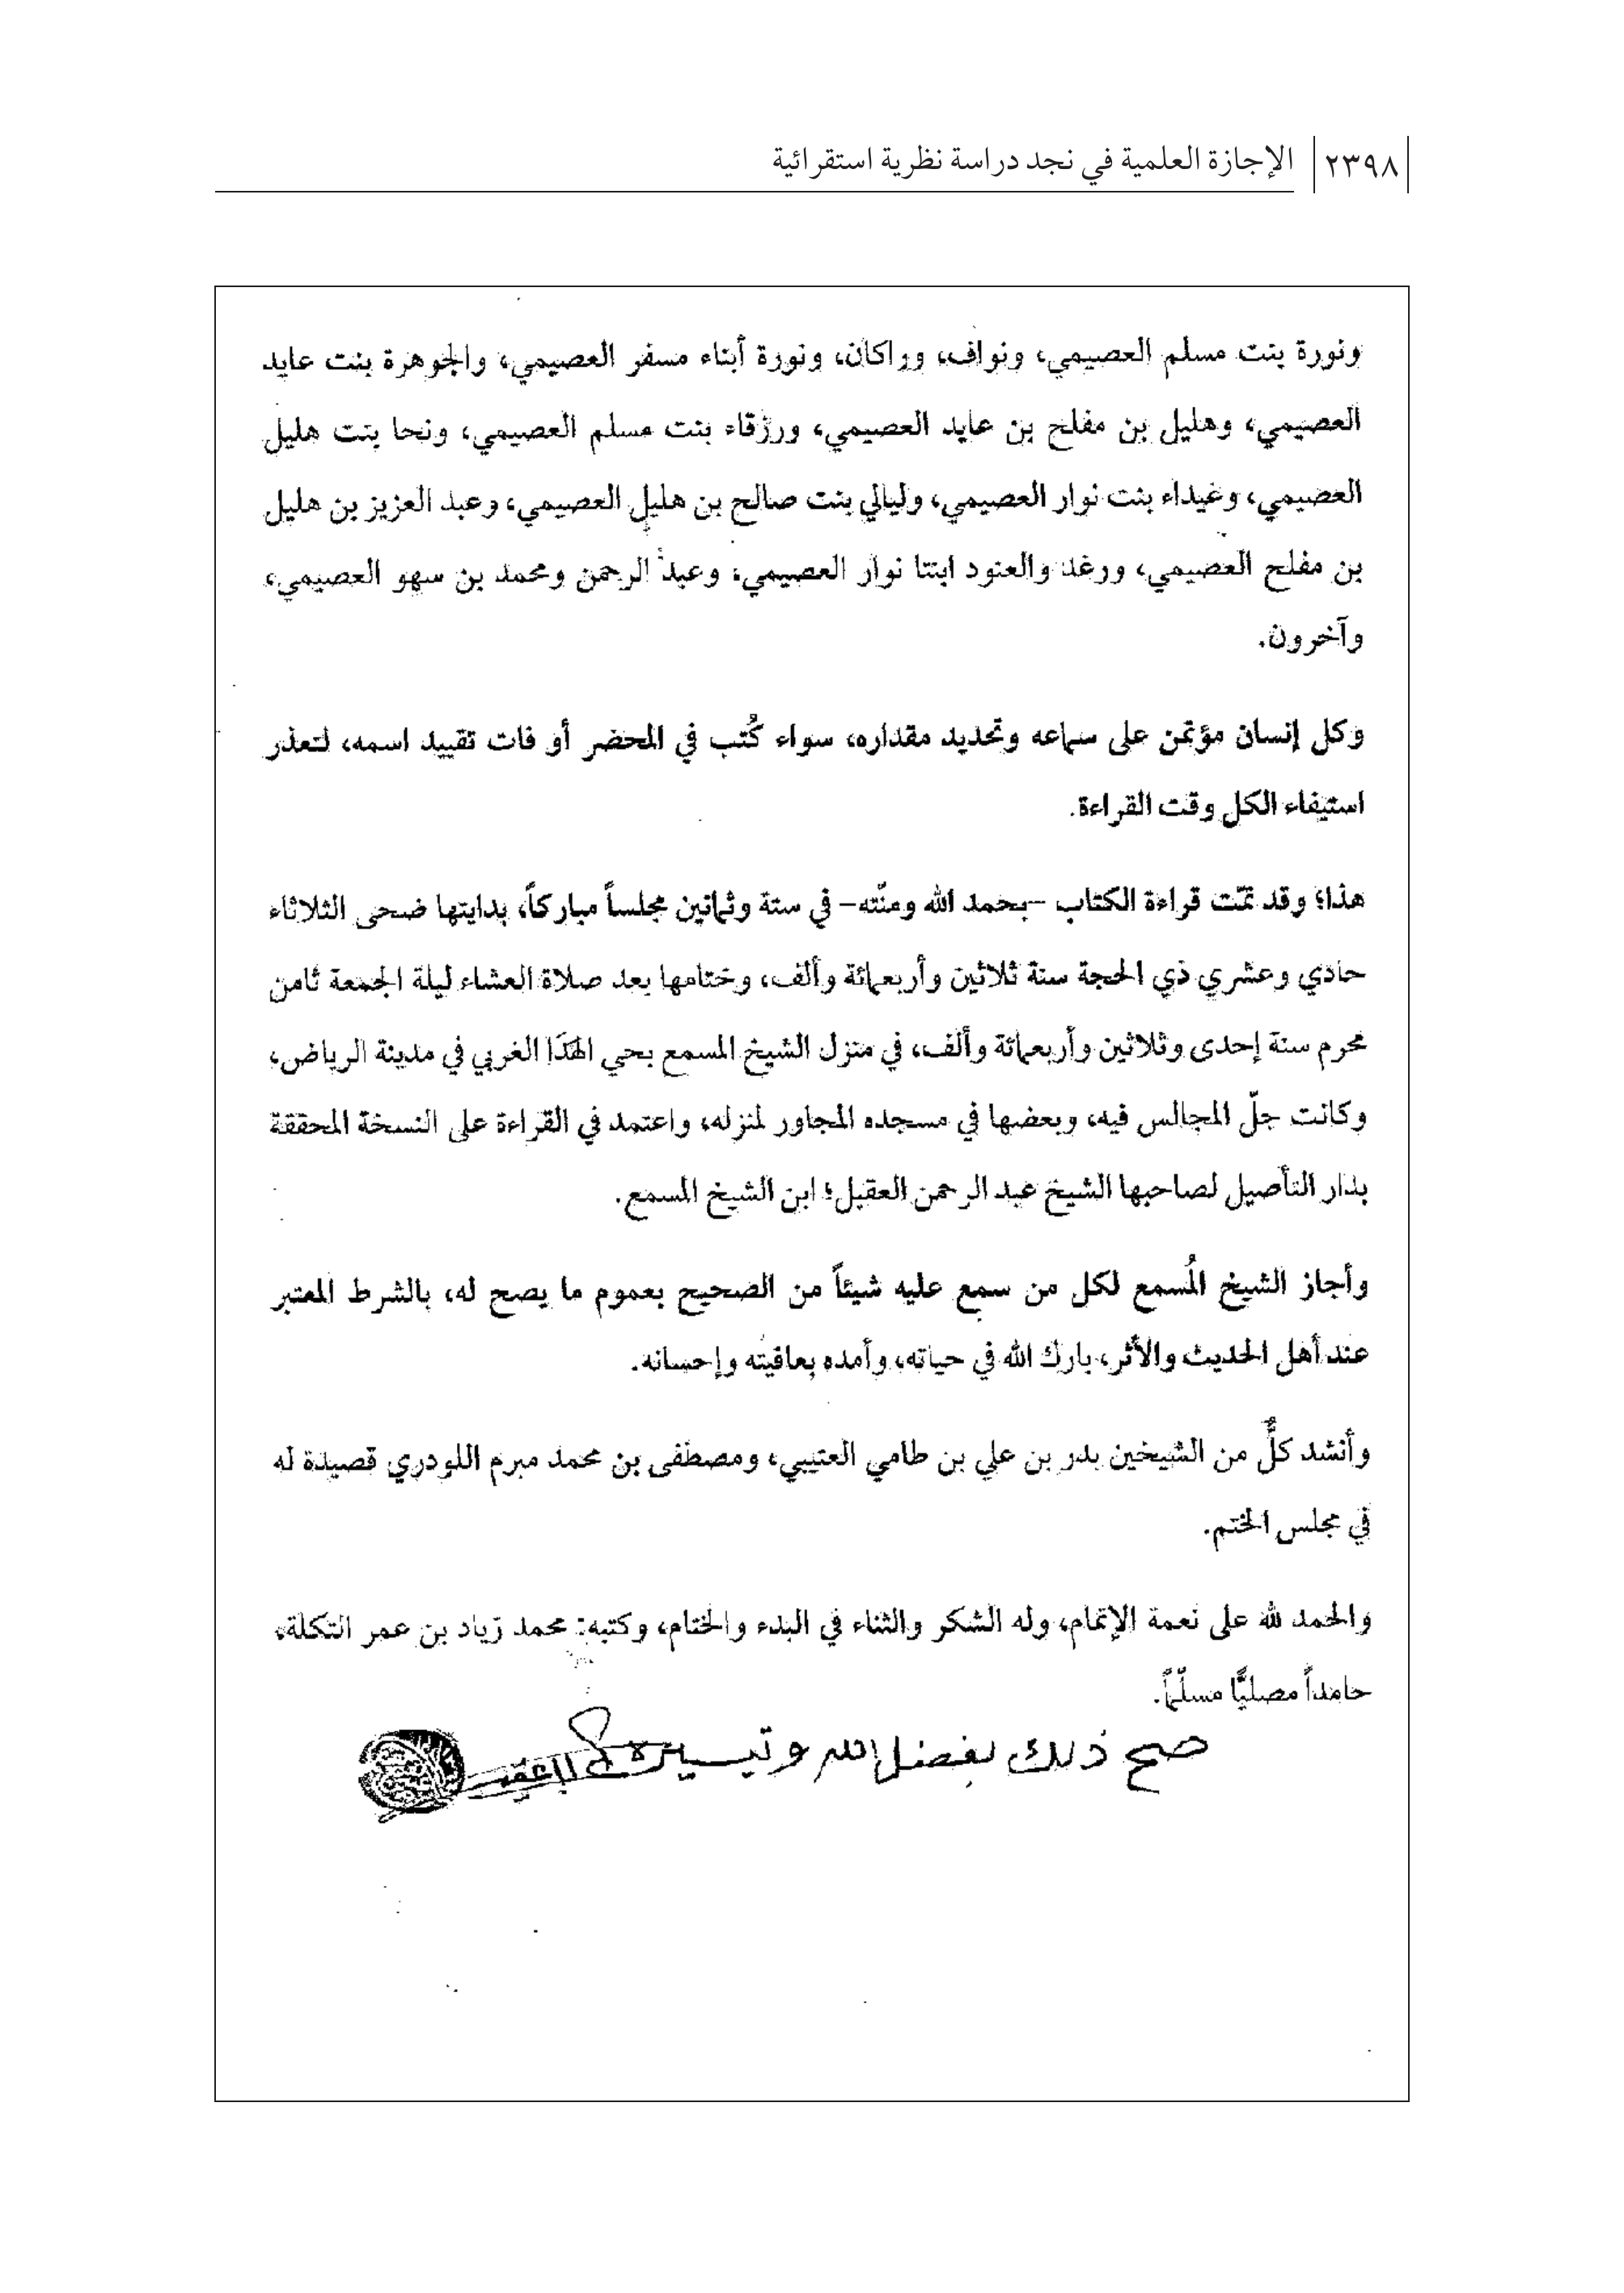 ٢٣٩٨ الإجازة العلمية في نجد دراسة نظرية استقرائية
ونورة بنت مسلم العصيمي، ونواف، وراكان، ونورة أبناء مسفر العصيمي، والجوهرة بنت عايد
العصيمي، وهليل بن مفلح بن عايد العصيمي، ورزقاء بنت مسلم العصيمي، ونحا بنت هليل
العصيمي، وغيداء بنت نوار العصيمي، وليالي بنت صالح بن هليل العصيمي، وعبد العزيز بن هليل
بن مفلح العصيمي، ورغد والعنود ابنتا نوار العصيمي، وعبد الرحمن ومحمد بن سهو العصيمي،
وآخرون.
وكل إنسان مؤتمن على سماعه وتحديد مقداره، سواء كُتب في المحضر أو فات تقييد اسمه، لتعذر
استيفاء الكل وقت القراءة.
هذا؛ وقد تمّت قراءة الكتاب -بحمد الله ومنّته- في ستة وثمانين مجلساً مباركاً، بدايتها ضحى الثلاثاء
حادي وعشري ذي الحجة سنة ثلاثين وأربعمائة وألف، وختامها بعد صلاة العشاء ليلة الجمعة ثامن
محرم سنة إحدى وثلاثين وأربعمائة وألف، في منزل الشيخ المسمع بحي الهَدَا الغربي في مدينة الرياض،
وكانت جلّ المجالس فيه، وبعضها في مسجده المجاور لمنزله، واعتمد في القراءة على النسخة المحققة
بدار التأصيل لصاحبها الشيخ عبد الرحمن العقيل؛ ابن الشيخ المسمع.
وأجاز الشيخ المُسمع لكل من سمع عليه شيئاً من الصحيح بعموم ما يصح له، بالشرط المعتبر
عند أهل الحديث والأثر، بارك الله في حياته، وأمده بعافيته وإحسانه.
وأنشد كلٌّ من الشيخين بدر بن علي بن طامي العتيبي، ومصطفى بن محمد مبرم اللودري قصيدة له
في مجلس الختم.
والحمد لله على نعمة الإتمام، وله الشكر والثناء في البدء والختام، وكتبه: محمد زياد بن عمر التكلة،
حامداً مصليًّا مسلّماً.
صح ذلك بفضل الله وتيسيره